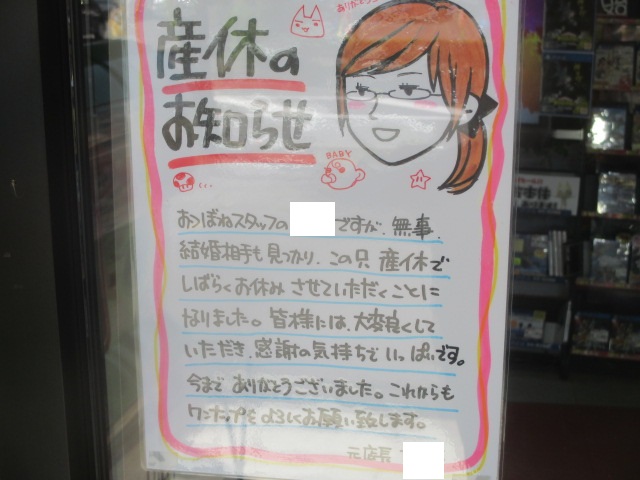 ありがとう
産休の
お知らせ
BABY
おつばねスタッフの ですが、無事、
結婚相手も見つかり、この只 産休で
しばらくお休みさせていただくことに
なりました。皆様には、大変良くして
いただき、感謝の気持ちでいっぱいです。
今までありがとうございました。これからも
ワンナップをよろしくお願い致します。
元店長